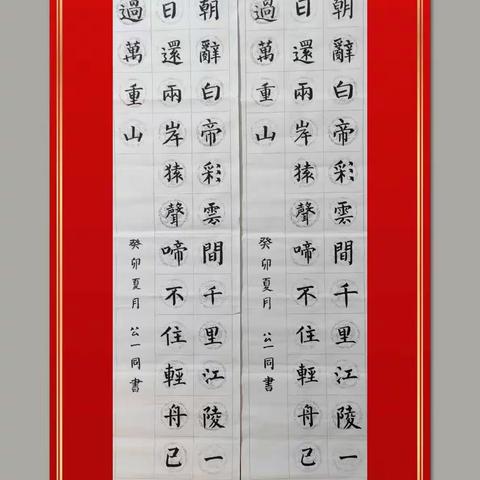 朝辭白帝彩雲間千里江陵一
日還兩岸猿聲啼不住輕舟已
過萬重山
癸卯夏月 公一同書
朝辭白帝彩雲間千里江陵一
日還兩岸猿聲啼不住輕舟已
過萬重山
癸卯夏月 公一同書